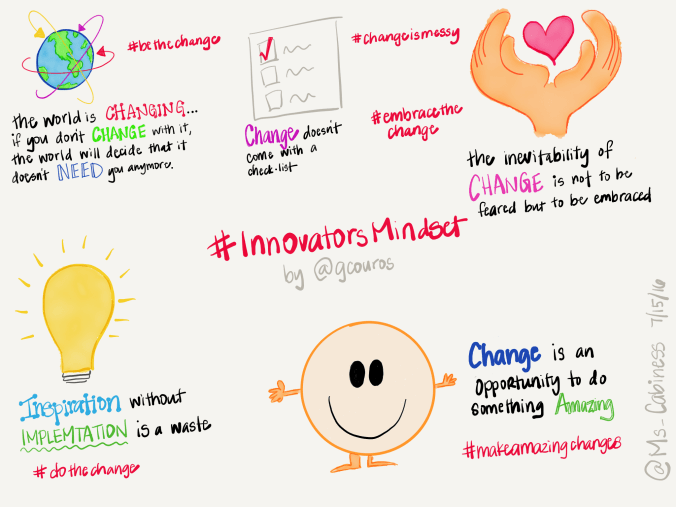 #bethechange
the world is CHANGING...
if you don't CHANGE with it,
the world will decide that it
doesn't NEED you anymore.
#changeismessy
#embracethe
change
Change doesn't
come with a
check-list
the inevitability of
CHANGE is not to be
feared but to be embraced
#InnovatorsMindset
by @gcouros
Inspiration without
IMPLEMTATION is a waste
#dothechange
Change is an
opportunity to do
something Amazing
#makeamazingchanges
@Ms_Cabiness 7/15/16